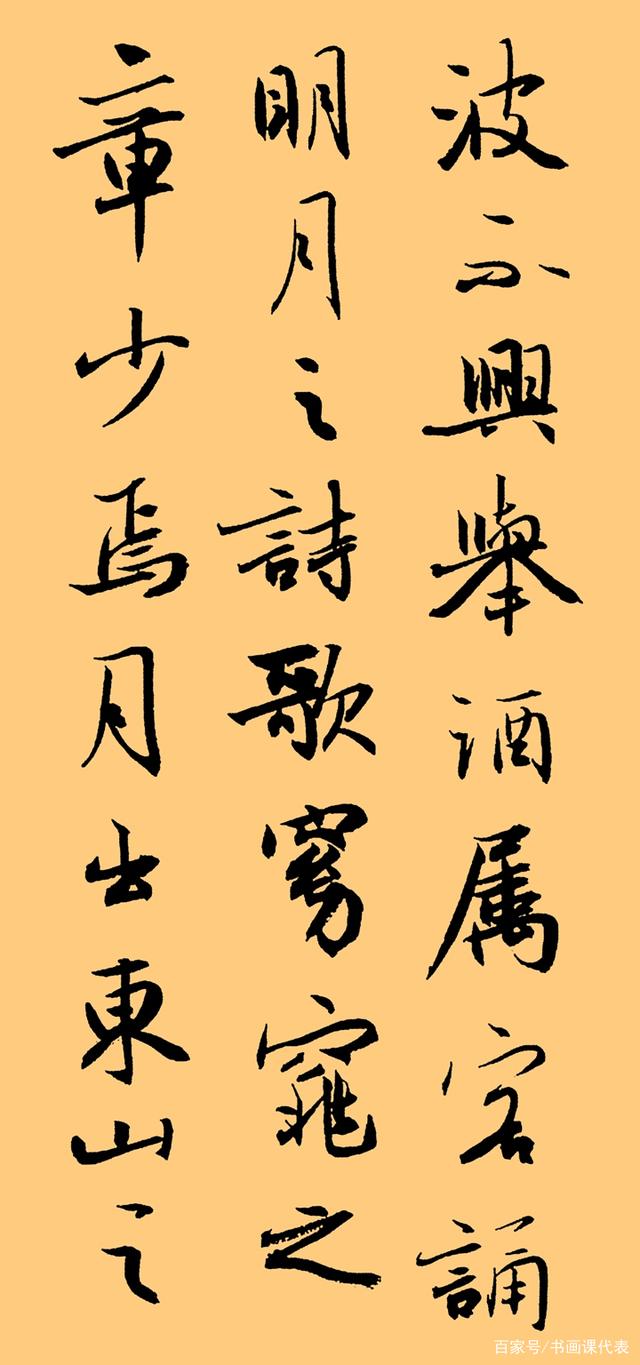 波不興舉酒属客誦
明月之詩歌窈窕之
章少焉月出東山之
百家号/书画课代表